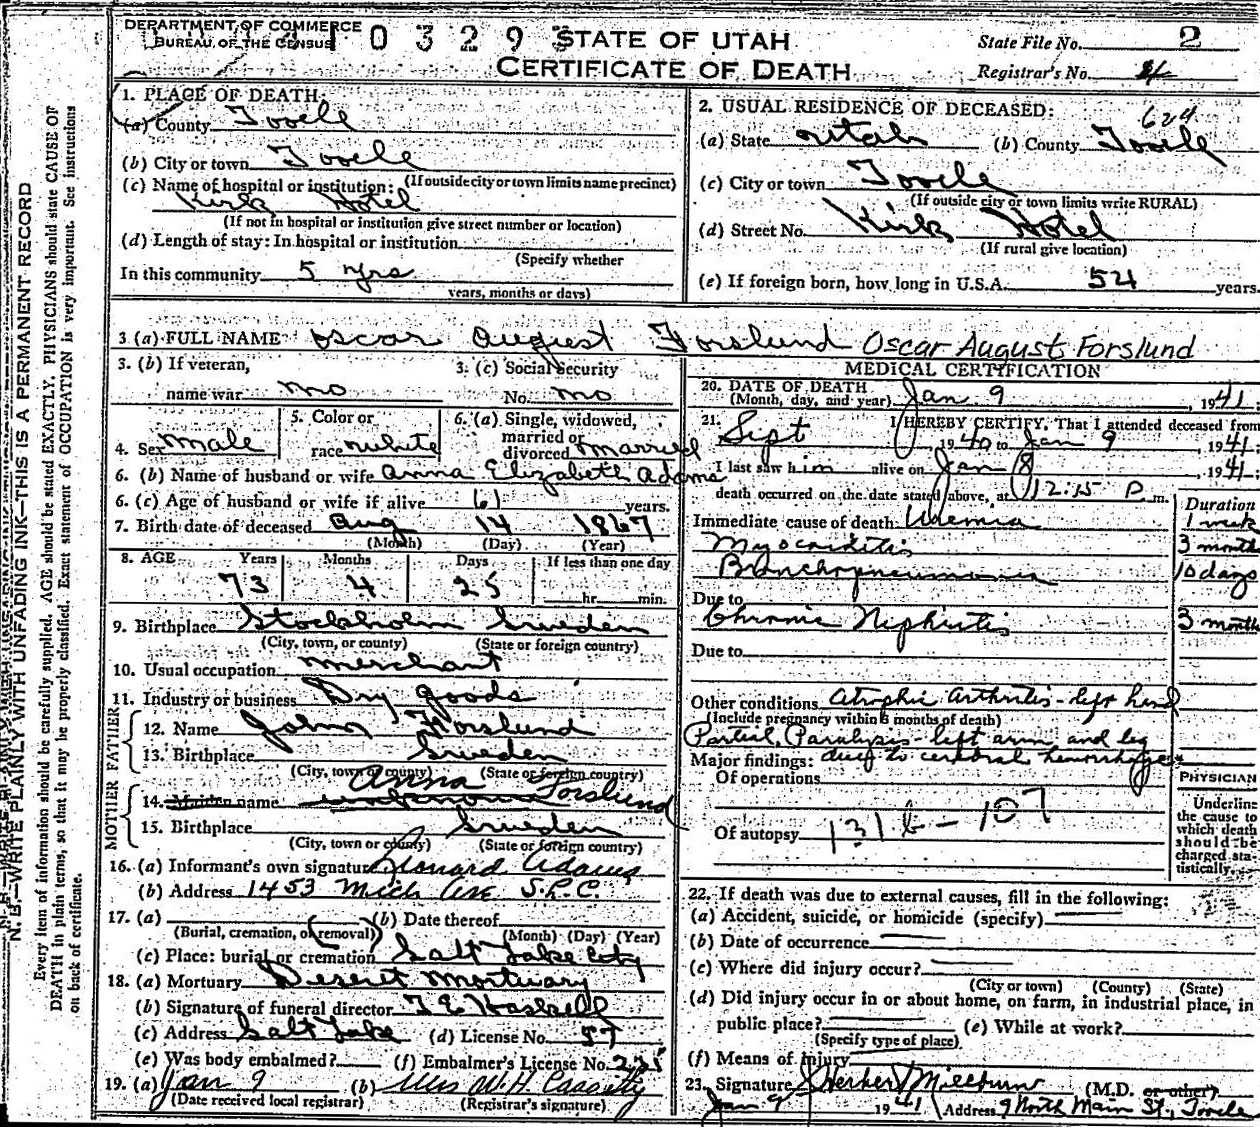 DEPARTMENT OF COMMERCE
BUREAU OF THE CENSUS
0 3 2 9
STATE OF UTAH
CERTIFICATE OF DEATH
State File No. 2
Registrar's No.
N. B.—WRITE PLAINLY WITH UNFADING INK—THIS IS A PERMANENT RECORD
Every item of information should be carefully supplied. AGE should be stated EXACTLY. PHYSICIANS should state CAUSE OF
DEATH in plain terms, so that it may be properly classified. Exact statement of OCCUPATION is very important. See instructions
on back of certificate.
1. PLACE OF DEATH:
(a) County Tooele
(b) City or town Tooele
(If outside city or town limits name precinct)
(c) Name of hospital or institution:
Kirk Hotel
(If not in hospital or institution give street number or location)
(d) Length of stay: In hospital or institution
(Specify whether
In this community 5 yrs
years, months or days)
2. USUAL RESIDENCE OF DECEASED:
624
(a) State Utah (b) County Tooele
(c) City or town Tooele
(If outside city or town limits write RURAL)
(d) Street No. Kirk Hotel
(If rural give location)
(e) If foreign born, how long in U.S.A. 54 years.
3 (a) FULL NAME Oscar August Forslund Oscar August Forslund
3. (b) If veteran,
name war no
3. (c) Social Security
No. no
4. Sex male
5. Color or
race white
6. (a) Single, widowed,
married or
divorced married
6. (b) Name of husband or wife Anna Elizabeth Adams
6. (c) Age of husband or wife if alive 61 years.
7. Birth date of deceased Aug 14 1867
(Month) (Day) (Year)
8. AGE Years Months Days If less than one day
73 4 25 hr. min.
9. Birthplace Stockholm Sweden
(City, town, or county) (State or foreign country)
10. Usual occupation merchant
11. Industry or business Dry goods
FATHER
12. Name John Forslund
13. Birthplace Sweden
(City, town or county) (State or foreign country)
MOTHER
Anna Forslund
14. Maiden name unknown
15. Birthplace Sweden
(City, town or county) (State or foreign country)
16. (a) Informant's own signature Leonard Adams
(b) Address 1453 Mich Ave S.L.C.
17. (a) (b) Date thereof
(Burial, cremation, or removal) (Month) (Day) (Year)
(c) Place: burial or cremation Salt Lake City
18. (a) Mortuary Deseret Mortuary
(b) Signature of funeral director
(c) Address Salt Lake (d) License No. 57
(e) Was body embalmed? (f) Embalmer's License No. 235
19. (a) Jan 9 (b) Mrs W. H. Cassity
(Date received local registrar) (Registrar's signature)
MEDICAL CERTIFICATION
20. DATE OF DEATH
(Month, day, and year) Jan 9, 1941
21. I HEREBY CERTIFY, That I attended deceased from
Sept 1940 to Jan 9, 1941
I last saw him alive on Jan 8, 1941;
death occurred on the date stated above, at 12:15 P m.
Duration
Immediate cause of death Uremia 1 week
Myocarditis 3 months
Bronchopneumonia 10 days
Due to
Chronic Nephritis 3 months
Due to
Other conditions Atrophic Arthritis - left hand
(Include pregnancy within 3 months of death)
Partial Paralysis - left arm and leg
Major findings: due to cerebral hemorrhage
Of operations
Of autopsy 131 b - 107
PHYSICIAN
Underline
the cause to
which death
should be
charged sta-
tistically.
22. If death was due to external causes, fill in the following:
(a) Accident, suicide, or homicide (specify)
(b) Date of occurrence
(c) Where did injury occur?
(City or town) (County) (State)
(d) Did injury occur in or about home, on farm, in industrial place, in
public place? (e) While at work?
(Specify type of place)
(f) Means of injury
23. Signature J Herbert Millburn (M.D. or other)
Jan 9 1941 Address 9 North Main St., Tooele